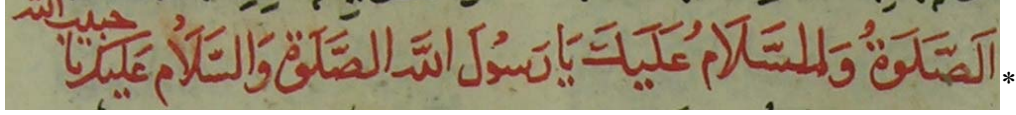 اَلصَّلَوةُ وَالسَّلَامُ عَلَيكَ يَا رَسُولَ اللَّه الصَّلَوة وَالسَّلَام عَلَيكَ يَا حبيب الله *